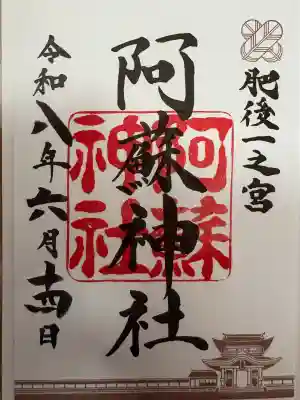 肥後一之宮
阿蘇神社
阿蘇神社
令和八年六月十四日